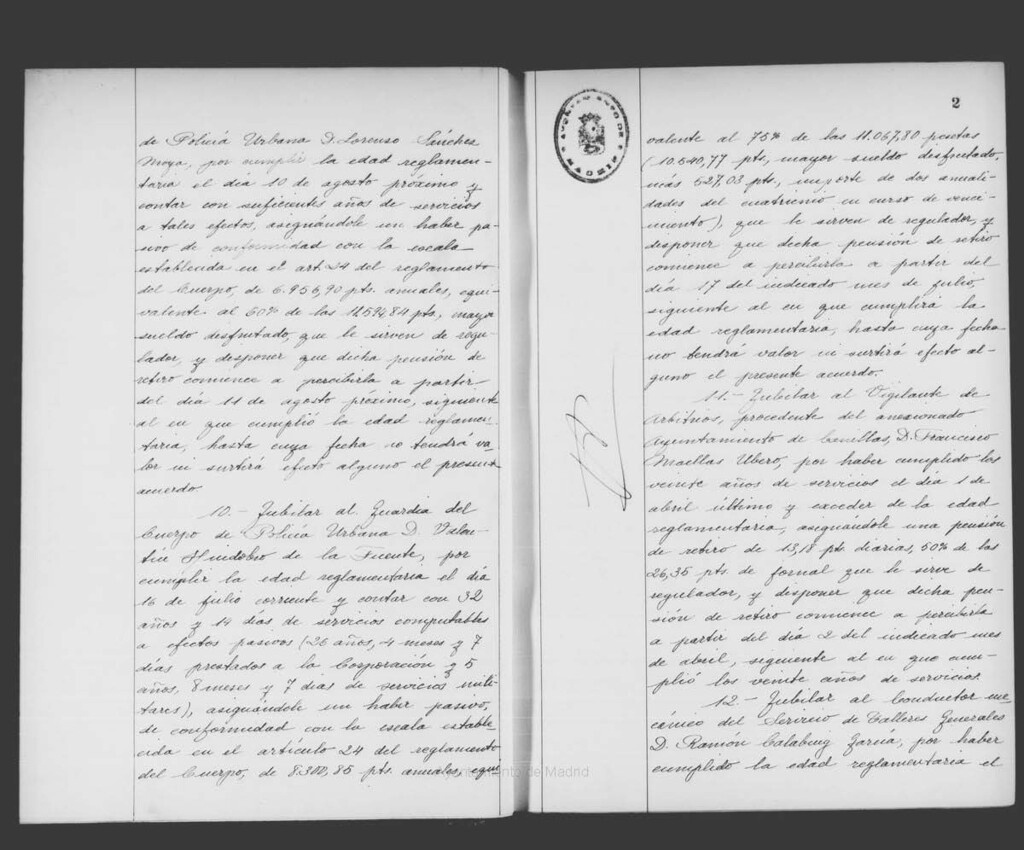 de Policía Urbana D. Lorenzo Sánchez
Moya, por cumplir la edad reglamen-
taria el día 10 de agosto próximo y
contar con suficientes años de servicios
a tales efectos, asignándole un haber pa-
sivo de conformidad con la escala
establecida en el art. 24 del reglamento
del Cuerpo, de 6.956,90 pts. anuales, equi-
valente al 60% de las 11.594,84 pts, mayor
sueldo disfrutado, que le sirven de regu-
lador, y disponer que dicha pensión de
retiro comience a percibirla a partir
del día 11 de agosto próximo, siguiente
al en que cumplió la edad reglamen-
taria, hasta cuya fecha no tendrá va-
lor ni surtirá efecto alguno el presente
acuerdo.
10.- Jubilar al Guardia del
Cuerpo de Policía Urbana D. Valen-
tín Huidobro de la Fuente, por
cumplir la edad reglamentaria el día
16 de julio corriente y contar con 32
años y 14 días de servicios computables
a efectos pasivos (26 años, 4 meses y 7
días prestados a la Corporación y 5
años, 8 meses y 7 días de servicios mili-
tares), asignándole un haber pasivo,
de conformidad con la escala estable-
cida en el artículo 24 del reglamento
del Cuerpo, de 8.300,85 pts. anuales, equi
2
valente al 75% de las 11.067,80 pesetas
(10.540,77 pts, mayor sueldo disfrutado,
más 527,03 pts, importe de dos anuali-
dades del cuatrienio en curso de venci-
miento), que le sirven de regulador, y
disponer que dicha pensión de retiro
comience a percibirla a partir del
día 17 del indicado mes de julio,
siguiente al en que cumplirá la
edad reglamentaria, hasta cuya fecha
no tendrá valor ni surtirá efecto al-
guno el presente acuerdo.
11.- Jubilar al Vigilante de
Arbitrios, procedente del anexionado
Ayuntamiento de Canillas, D. Francisco
Maellas Ubero, por haber cumplido los
veinte años de servicios el día 1 de
abril último y exceder de la edad
reglamentaria, asignándole una pensión
de retiro de 13,18 pts. diarias, 50% de las
26,35 pts de jornal que le sirve de
regulador, y disponer que dicha pen-
sión de retiro comience a percibirla
a partir del día 2 del indicado mes
de abril, siguiente al en que cum-
plió los veinte años de servicios.
12.- Jubilar al Conductor me-
cánico del Servicio de Talleres Generales
D. Ramón Calabuig García, por haber
cumplido la edad reglamentaria el
Ayuntamiento de Madrid